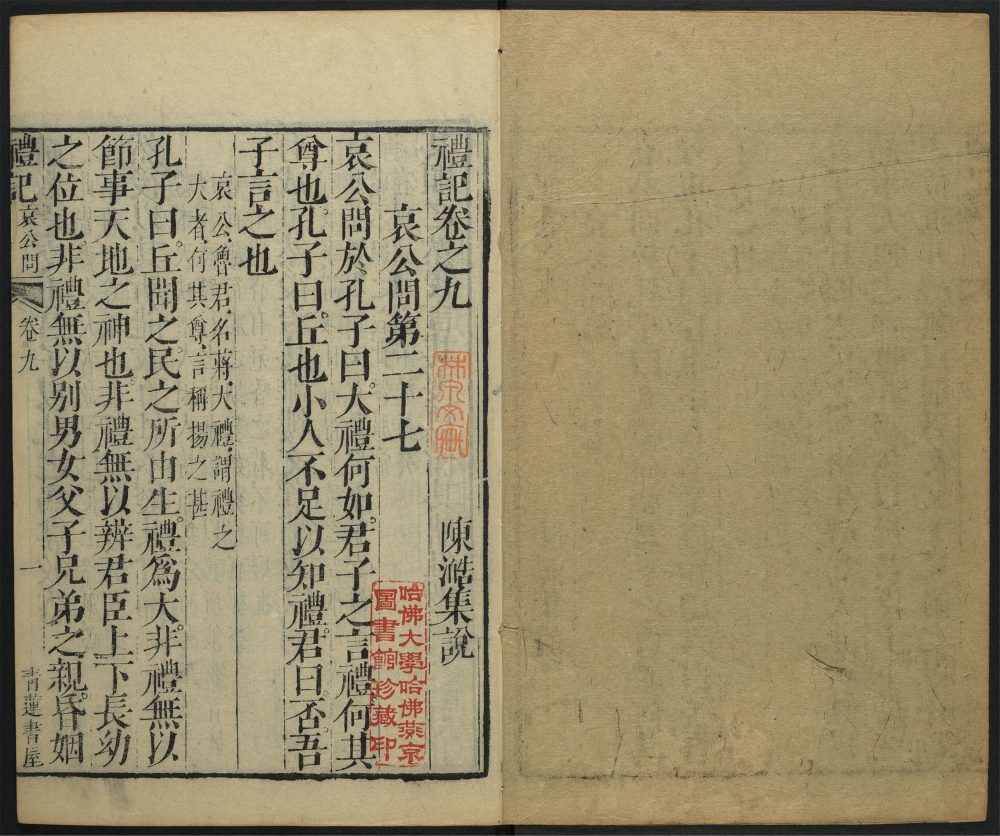 禮記卷之九
陳澔集說
哀公問第二十七
哀公問於孔子曰大禮何如君子之言禮何其
尊也孔子曰丘也小人不足以知禮君曰否吾
子言之也
哀公魯君名蔣大禮謂禮之
大者何其尊言稱揚之甚
孔子曰丘聞之民之所由生禮為大非禮無以
節事天地之神也非禮無以辨君臣上下長幼
之位也非禮無以別男女父子兄弟之親昏姻
禮記
哀公問
卷九
一
青蓮書屋
哈佛大學哈佛燕京
圖書館珍藏印